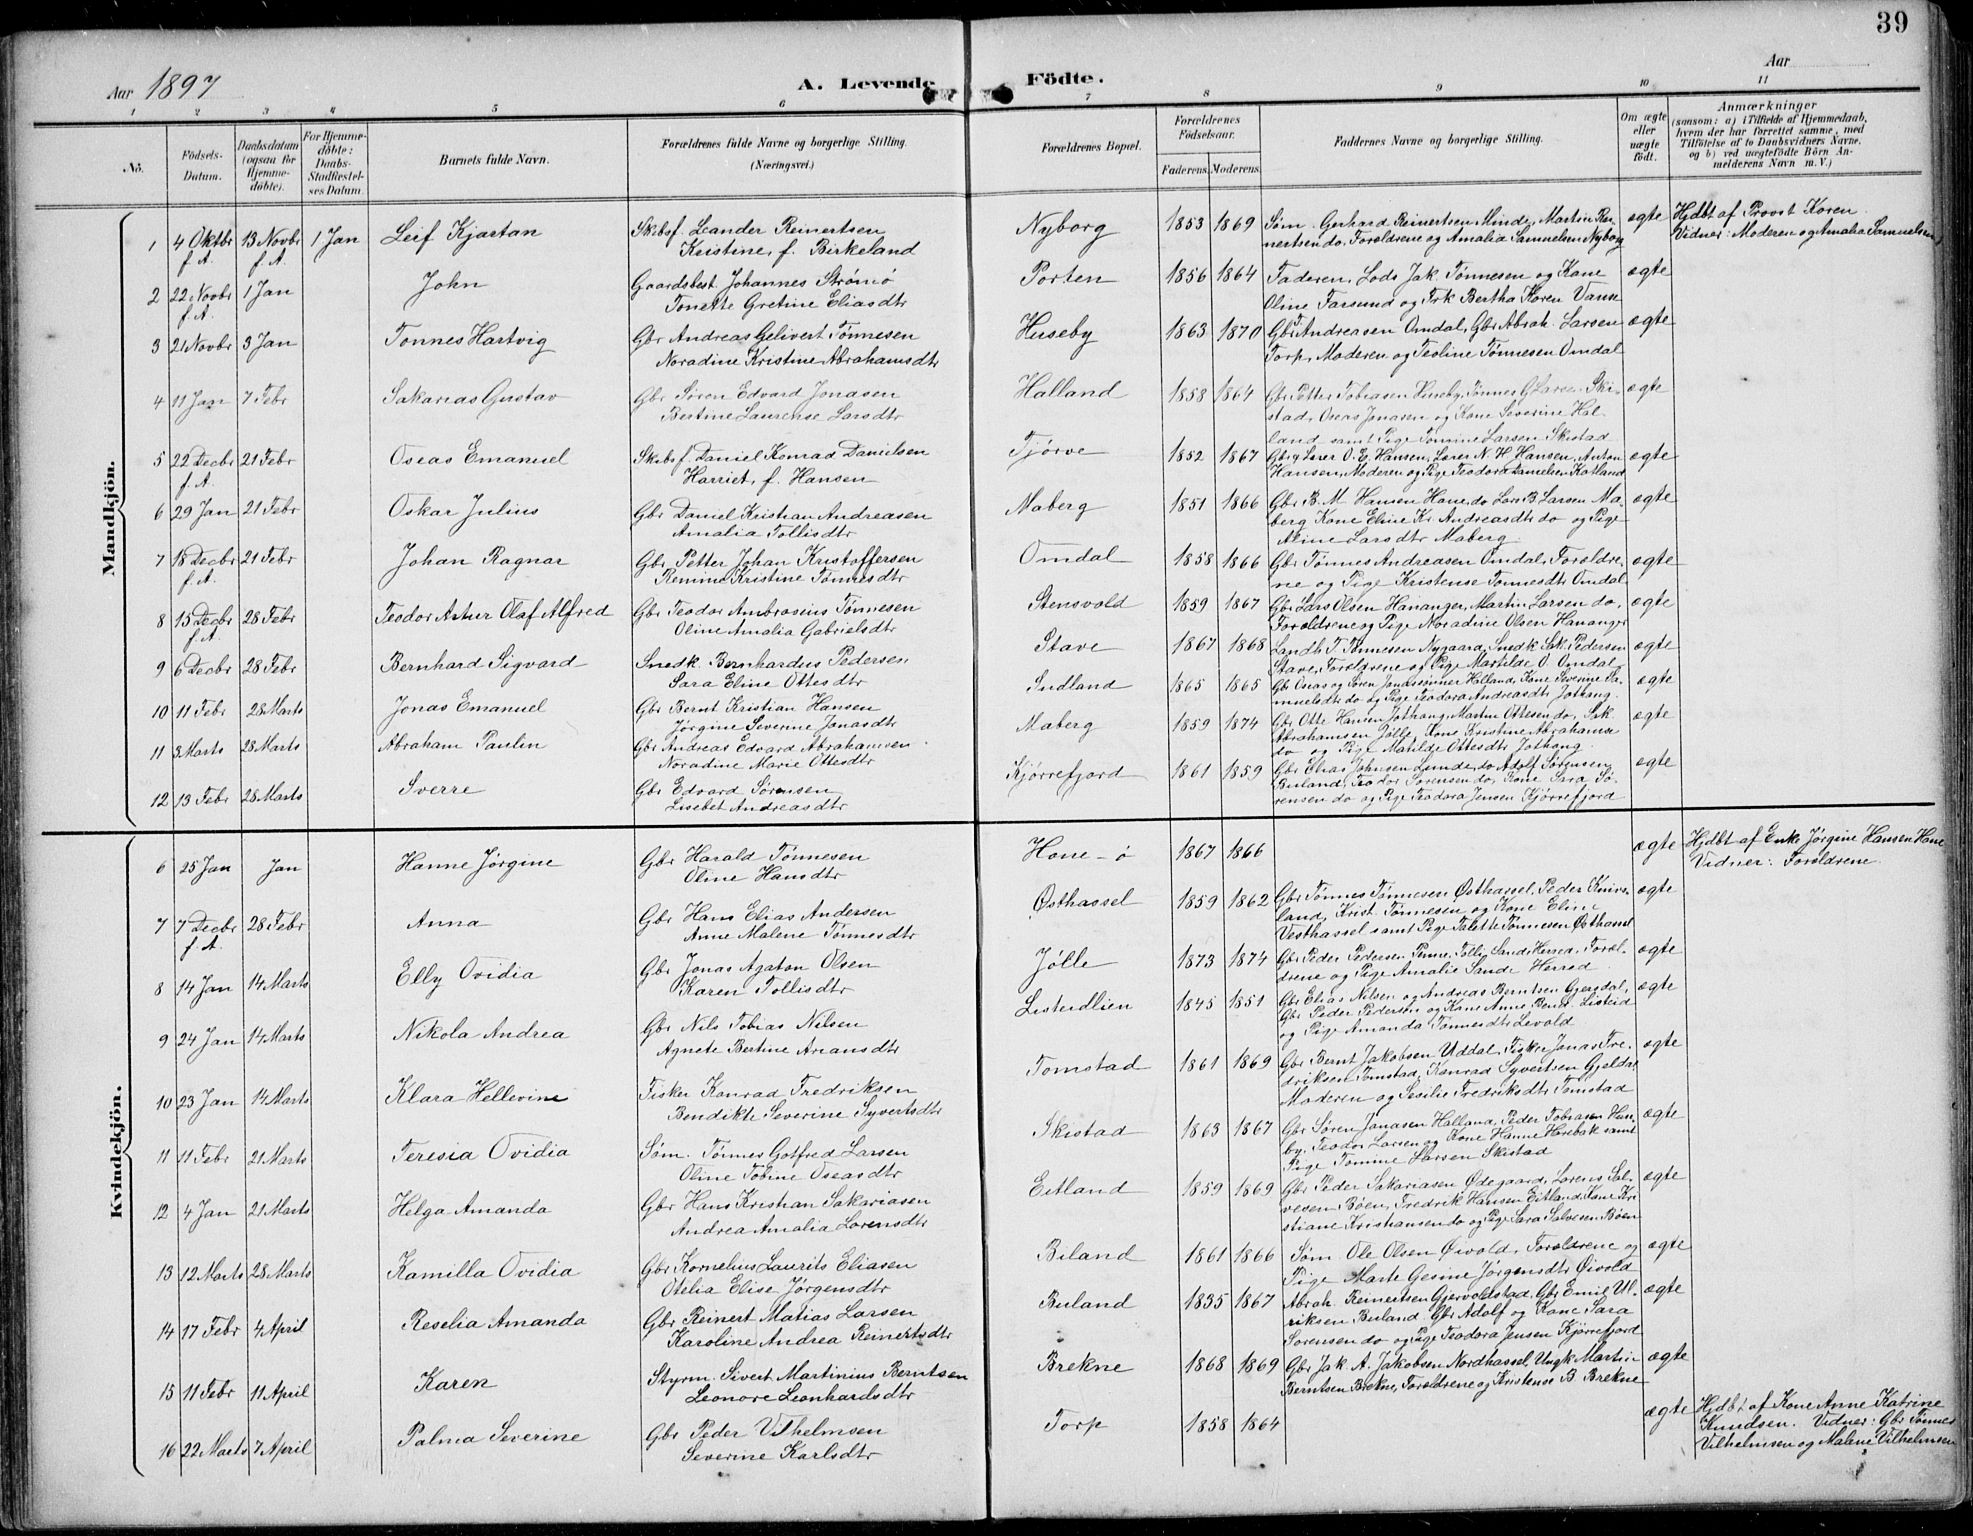 39
Aar 1897
A. Levende Födte.
Aar
1 2 3 4 5 6 7 8 9 10 11
No.
Födsels-Datum.
Daabsdatum (ogsaa for Hjemmedöbte).
For Hjemmedöbte: Daabs-Stadfæstelses Datum.
Barnets fulde Navn.
Forældrenes fulde Navne og borgerlige Stilling.
(Næringsvei.)
Forældrenes Bopæl.
Forældrenes Födselsaar.
Faderens. Moderens.
Faddernes Navne og borgerlige Stilling.
Om ægte eller uægte födt.
Anmærkninger
(saasom: a) i Tilfælde af Hjemmedaab, hvem der har forrettet samme, med Tilföielse af to Daabsvidners Navne, og b) ved uægtefödte Börn Anmelderens Navn m. V.)
Mandkjön.
1 4 Oktbr f.A. 13 Novbr f.A. 1 Jan Leif Kjartan Skibsf. Leander Reinertsen
Kristine, f. Birkeland
Nyborg 1853 1869 Søm. Gerhard Reinertsen Minde, Martin Rei-
nertsen do, Forældrene og Amalia Samuelsen Nyborg
ægte Hjdbt af Provst Koren
Vidner: Moderen og Amalia Samuelsen
2 22 Novbr f.A. 1 Jan John Gaardsbest. Johannes Strømø
Tonette Gretine Eliasdtr
Porten 1856 1864 Faderen, Lods Jak. Tønnesen og Kone
Oline Farsund og Frk Bertha Koren Vanse
ægte
3 21 Novbr 3 Jan Tonnes Hartvig Gbr Andreas Gelivert Tønnesen
Noradine Kristine Abrahamsdtr
Huseby 1863 1870 Gbr T Andreasen Omdal, Gbr Abrah. Larsen
Torp, Moderen og Teoline Tønnesen Omdal
ægte
4 11 Jan 7 Febr Sakarias Gustav Gbr Søren Edvard Jonasen
Bertine Laurense Larsdtr
Halland 1858 1864 Gbr Petter Tobiasen Huseby, Tønnes G Larsen Ski-
stad, Oseas Jonasen og Kone Severine Hal-
land samt Pige Tomine Larsen Skistad
ægte
5 22 Decbr f.A. 21 Febr Oseas Emanuel Skibsf. Daniel Konrad Danielsen
Harriet, f. Hansen
Tjørve 1852 1867 Gbr og Lærer O. E. Hansen, Lærer N. H. Hansen, Anton
Hansen, Moderen og Pige Teodora Danielsen Katland
ægte
6 29 Jan 21 Febr Oskar Julius Gbr Daniel Kristian Andreasen
Amalia Tollisdtr
Maberg 1851 1866 Gbr B. M. Hansen Hane, do Lars B. Larsen Ma-
berg Kone Eline Kr. Andreasdtr do og Pige
Aline Larsdtr Maberg
ægte
7 18 Decbr f.A. 21 Febr Johan Ragnar Gbr Petter Johan Kristoffersen
Remine Kristine Tønnesdtr
Omdal 1858 1866 Gbr Tønnes Andreasen Omdal, Foraldre-
ne og Pige Kristense Tønnesdtr Omdal
ægte
8 15 Decbr f.A. 28 Febr Teodor Artur Olaf Alfred Gbr Teodor Ambrosius Tønnesen
Oline Amalia Gabrielsdtr
Stensvold 1859 1867 Gbr Lars Olsen Hananger, Martin Larsen do,
Foraldrene og Pige Noradine Olsen Hananger
ægte
9 6 Decbr 28 Febr Bernhard Sigvard Snedk. Bernhardus Pedersen
Sara Eline Ottesdtr
Stave 1867 1868 Landh. T. Tønnesen Nygaard, Snedk Sak. Pedersen
Stave, Foraldrene og Pige Martilde O. Omdal
ægte
10 11 Febr 28 Marts Jonas Emanuel Gbr Bernt Kristian Hansen
Jørgine Severine Jonasdtr
Indland 1865 1865 Gbr Oseas og Søren Jonassønner Halland, Kone Severine Sa-
muelsdtr do og Pige Teodora Andreasdtr Jothang
ægte
11 3 Marts 28 Marts Abraham Paulin Gbr Andreas Edvard Abrahamsen
Noradine Marie Ottesdtr
Maberg 1859 1874 Gbr Otte Hansen Jothang, Martin Ottesen do, Sak.
Abrahamsen Jølle, Kone Kristine Abrahamse
do og Pige Matilde Ottesdtr Jothang
ægte
12 13 Febr 28 Marts Sverre Gbr Edvard Sørensen
Lisebet Andreasdtr
Kjørrefjord 1861 1859 Gbr Elias Johnsen Lunde, do Adolf Sørensen
Buland, Teodor Sørensen do, Kone Sara Sø-
rensen do og Pige Teodora Jensen Kjørrefjord
ægte
Kvindekjön.
6 25 Jan Jan Hanne Jørgine Gbr Harald Tønnesen
Oline Hansdtr
Hone-ø 1867 1866 ægte Hjdbt af Enke Jørgine Hansen Hane
Vidner: Foraldrene
7 7 Decbr f.A. 28 Febr Anna Gbr Hans Elias Andersen
Anne Malene Tønnesdtr
Østhassel 1859 1862 Gbr Tønnes Tønnesen Østhassel, Peder Knivs-
land, Krist. Tønnesen og Kone Eline
Vesthassel samt Pige Talette Tønnesen Østhassel
ægte
8 14 Jan 14 Marts Elly Ovidia Gbr Jonas Agaton Olsen
Karen Tollisdtr
Jølle 1873 1874 Gbr Peder Pedersen Penne, Tolli Sande Herred, Foræl-
drene og Pige Amalie Sande Herred
ægte
9 24 Jan 14 Marts Nikola Andrea Gbr Nils Tobias Nilsen
Agnete Bertine Ariansdtr
Listeidlien 1845 1851 Gbr Elias Nilsen og Andreas Berntsen Gjersdal,
Gbr Peder Pedersen og Kone Anne Bent. Listeid
og Pige Amanda Tønnesdtr Levold
ægte
10 23 Jan 14 Marts Klara Hellevine Fisker Konrad Fredriksen
Bendikte Severine Syvertsdtr
Tomstad 1861 1869 Gbr Bernt Jakobsen Uddal, Fisker Jonas Fre-
driksen Tomstad, Konrad Syvertsen Gjeldal
Moderen og Sesilie Fredriksdtr Tomstad
ægte
11 11 Febr 21 Marts Teresia Ovidia Søm. Tønnes Gotfred Larsen
Oline Tobine Oseasdtr
Skistad 1863 1867 Gbr Søren Jonasen Halland, Peder Tobiasen Huse-
by, Teodor Larsen og Kone Hanne Horebak samt
Pige Tomine Larsen Skistad
ægte
12 4 Jan 21 Marts Helga Amanda Gbr Hans Kristian Sakariasen
Andrea Amalia Lorensdtr
Eitland 1859 1869 Gbr Peder Sakariasen Ødegaard, Lorens Sal-
vesen Bøen, Fredrik Hansen Eitland, Kone Kri-
stiane Kristiansen do og Pige Sara Salvesen Bøen
ægte
13 12 Marts 28 Marts Kamilla Ovidia Gbr Kornelius Laurits Eliasen
Otelia Elise Jørgensdtr
Biland 1861 1866 Søm. Ole Olsen Øivold, Foraldrene og
Pige Marte Gesine Jørgensdtr Øivold
ægte
14 17 Febr 4 April Reselia Amanda Gbr Reinert Matias Larsen
Karoline Andrea Reinertsdtr
Buland 1835 1867 Abrah. Reinertsen Gjervoldstad, Gbr Emil Ul-
riksen Buland, Gbr Adolf og Kone Sara
Sørensen do og Pige Teodora Jensen Kjørrefjord
ægte
15 11 Febr 11 April Karen Styrm. Sivert Martinius Berntsen
Leonore Leonhardsdtr
Brekne 1868 1869 Gbr Jak. A. Jakobsen Nordhassel, Ungk Martin
Berntsen Brekne, Forældrene og Kristense B. Brekne
ægte
16 22 Marts 7 April Palma Severine Gbr Peder Vilhelmsen
Severine Karlsdtr
Torp 1858 1864 ægte Hjdbt af Kone Anne Katrine
Knudsen. Vidner: Gbr Tønnes
Vilhelmsen og Malene Vilhelmsen